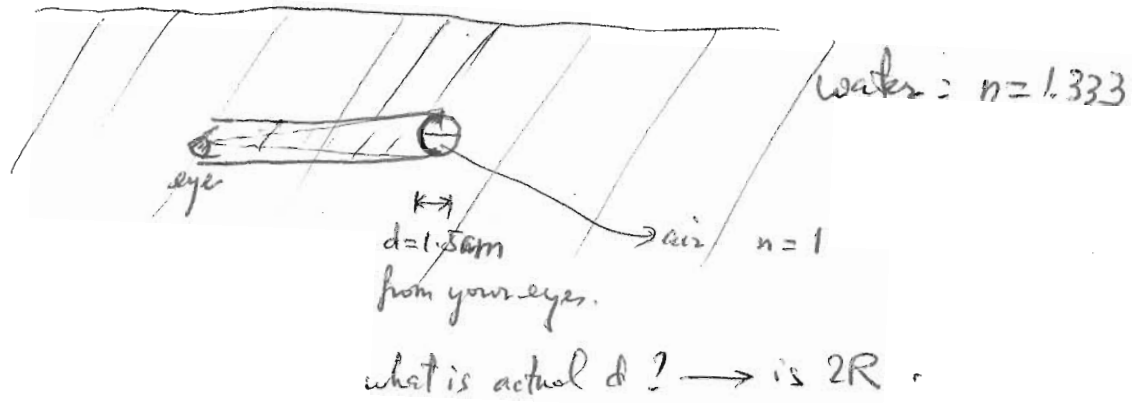 water : n=1.333
eye
d=1.5cm
air n=1
from your eyes.
what is actual d ? → is 2R .